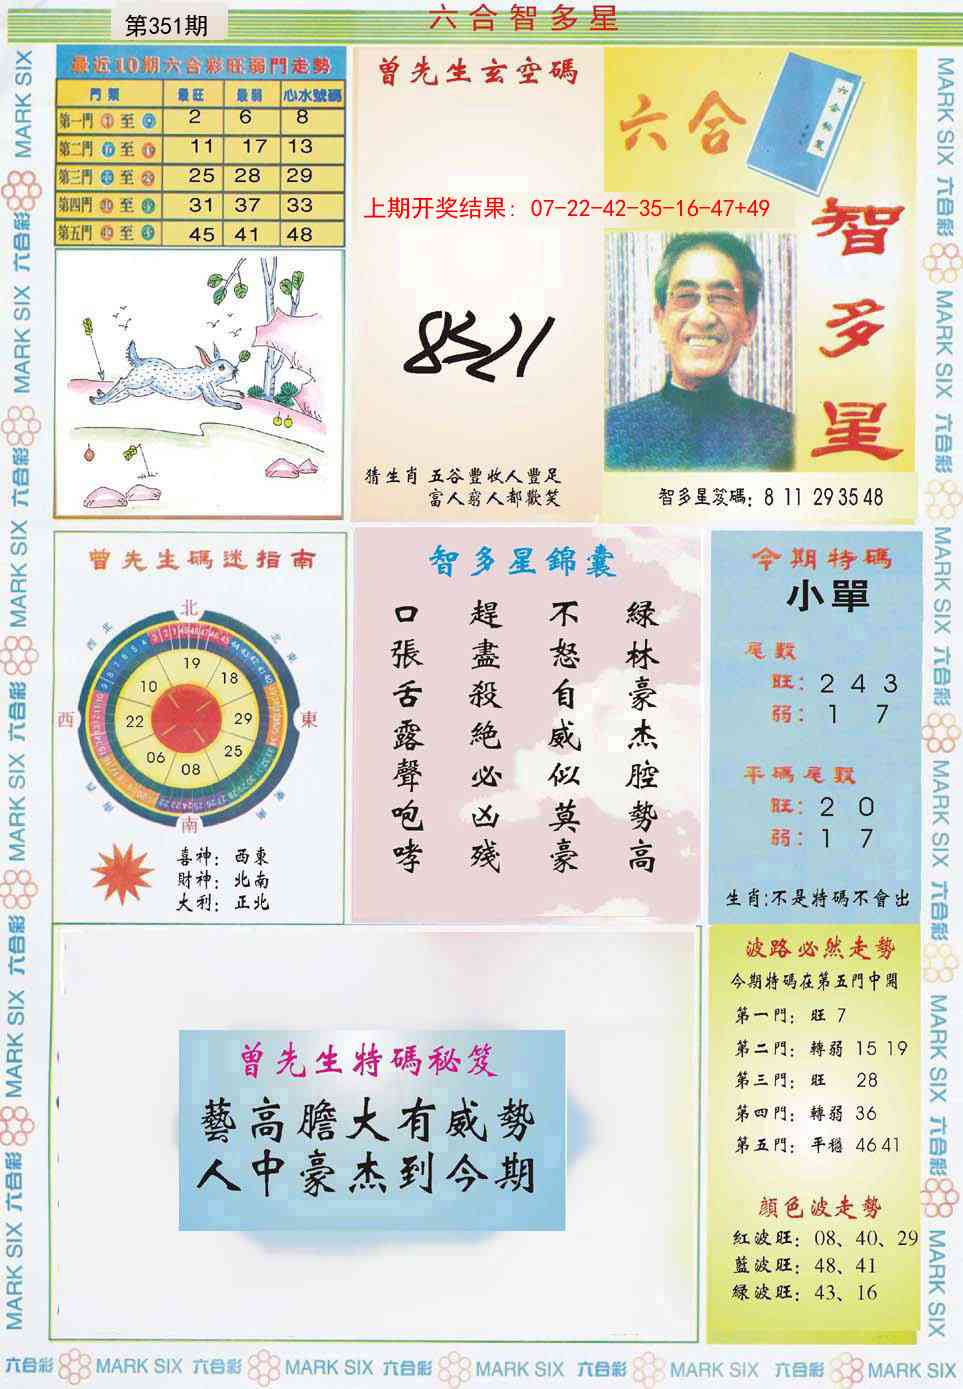 第351期
六合智多星
最近10期六合彩旺弱門走勢
門類 最旺 最弱 心水號碼
第一門 至 2 6 8
第二門 至 11 17 13
第三門 至 25 28 29
第四門 至 31 37 33
第五門 至 45 41 48
曾先生玄空碼
六合
智多星
上期开奖结果: 07-22-42-35-16-47+49
猜生肖 五谷豐收人豐足
富人窮人都歡笑
智多星笈碼: 8 11 29 35 48
曾先生碼迷指南
北
西北
東北
19
10
18
西
22
29
東
06
25
08
南
喜神: 西東
財神: 北南
大利: 正北
智多星錦囊
綠林豪杰腔勢高
不怒自威似莫豪
趕盡殺絕必凶殘
口張舌露聲咆哮
今期特碼
小單
尾數
旺: 2 4 3
弱: 1 7
平碼尾數
旺: 2 0
弱: 1 7
生肖:不是特碼不會出
曾先生特碼秘笈
藝高膽大有威勢
人中豪杰到今期
波路必然走勢
今期特碼在第五門中開
第一門: 旺 7
第二門: 轉弱 15 19
第三門: 旺 28
第四門: 轉弱 36
第五門: 平穩 46 41
顔色波走勢
紅波旺: 08、40、29
藍波旺: 48、41
綠波旺: 43、16
六合彩 MARK SIX 六合彩 MARK SIX 六合彩 MARK SIX 六合彩 MARK SIX 六合彩 MARK SIX